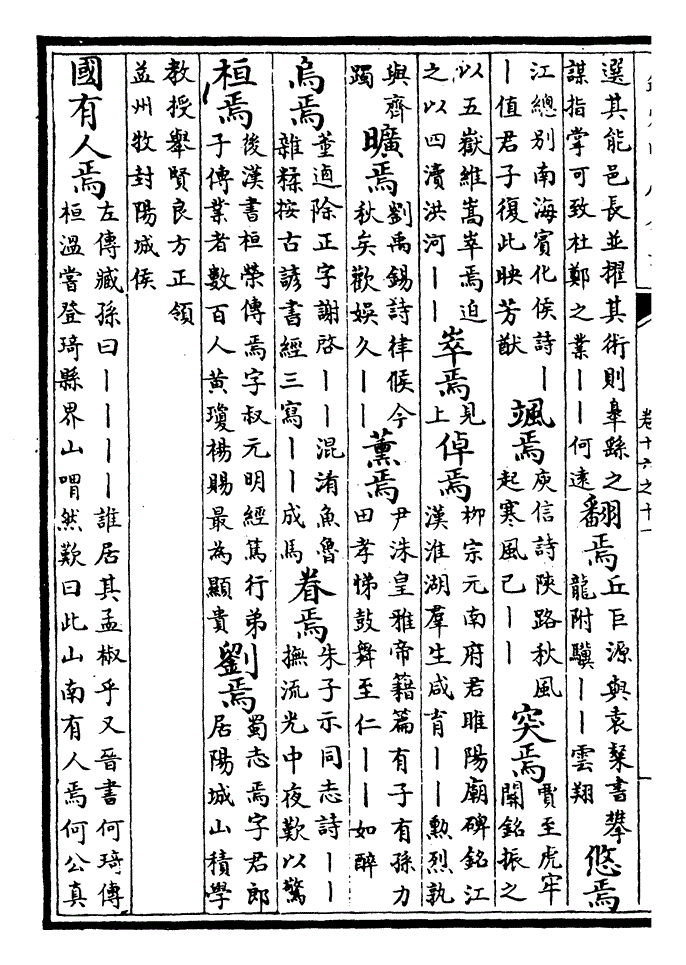 卷十六之十一
選其能邑長並擢其術則皋繇之
謀指掌可致杜鄭之業丨丨何遠
翻焉
丘巨源與袁粲書攀
龍附驥丨丨雲翔
悠焉
江總別南海賓化侯詩丨
丨值君子復此映芳猷
颯焉
庾信詩陝路秋風
起寒風已丨丨
突焉
賈至虎牢
關銘振之
以五嶽維嵩崒焉迫
之以四瀆洪河丨丨
崒焉
見
上
倬焉
柳宗元南府君睢陽廟碑銘江
漢淮湖羣生咸育丨丨勲烈孰
與齊
躅
曠焉
劉禹錫詩律候今
秋矣歡娛久丨丨
薰焉
尹洙皇雅帝籍篇有子有孫力
田孝悌鼓舞至仁丨丨如醉
烏焉
董逌除正字謝啓丨丨混淆魚魯
雜糅按古諺書經三寫丨丨成馬
眷焉
朱子示同志詩丨丨
撫流光中夜歎以驚
桓焉
後漢書桓榮傳焉字叔元明經篤行弟
子傳業者數百人黄瓊楊賜最為顯貴
劉焉
蜀志焉字君郎
居陽城山積學
教授舉賢良方正領
益州牧封陽城侯
國有人焉
左傳臧孫曰丨丨丨丨誰居其孟椒乎又晉書何琦傳
桓溫嘗登琦縣界山喟然歎曰此山南有人焉何公真